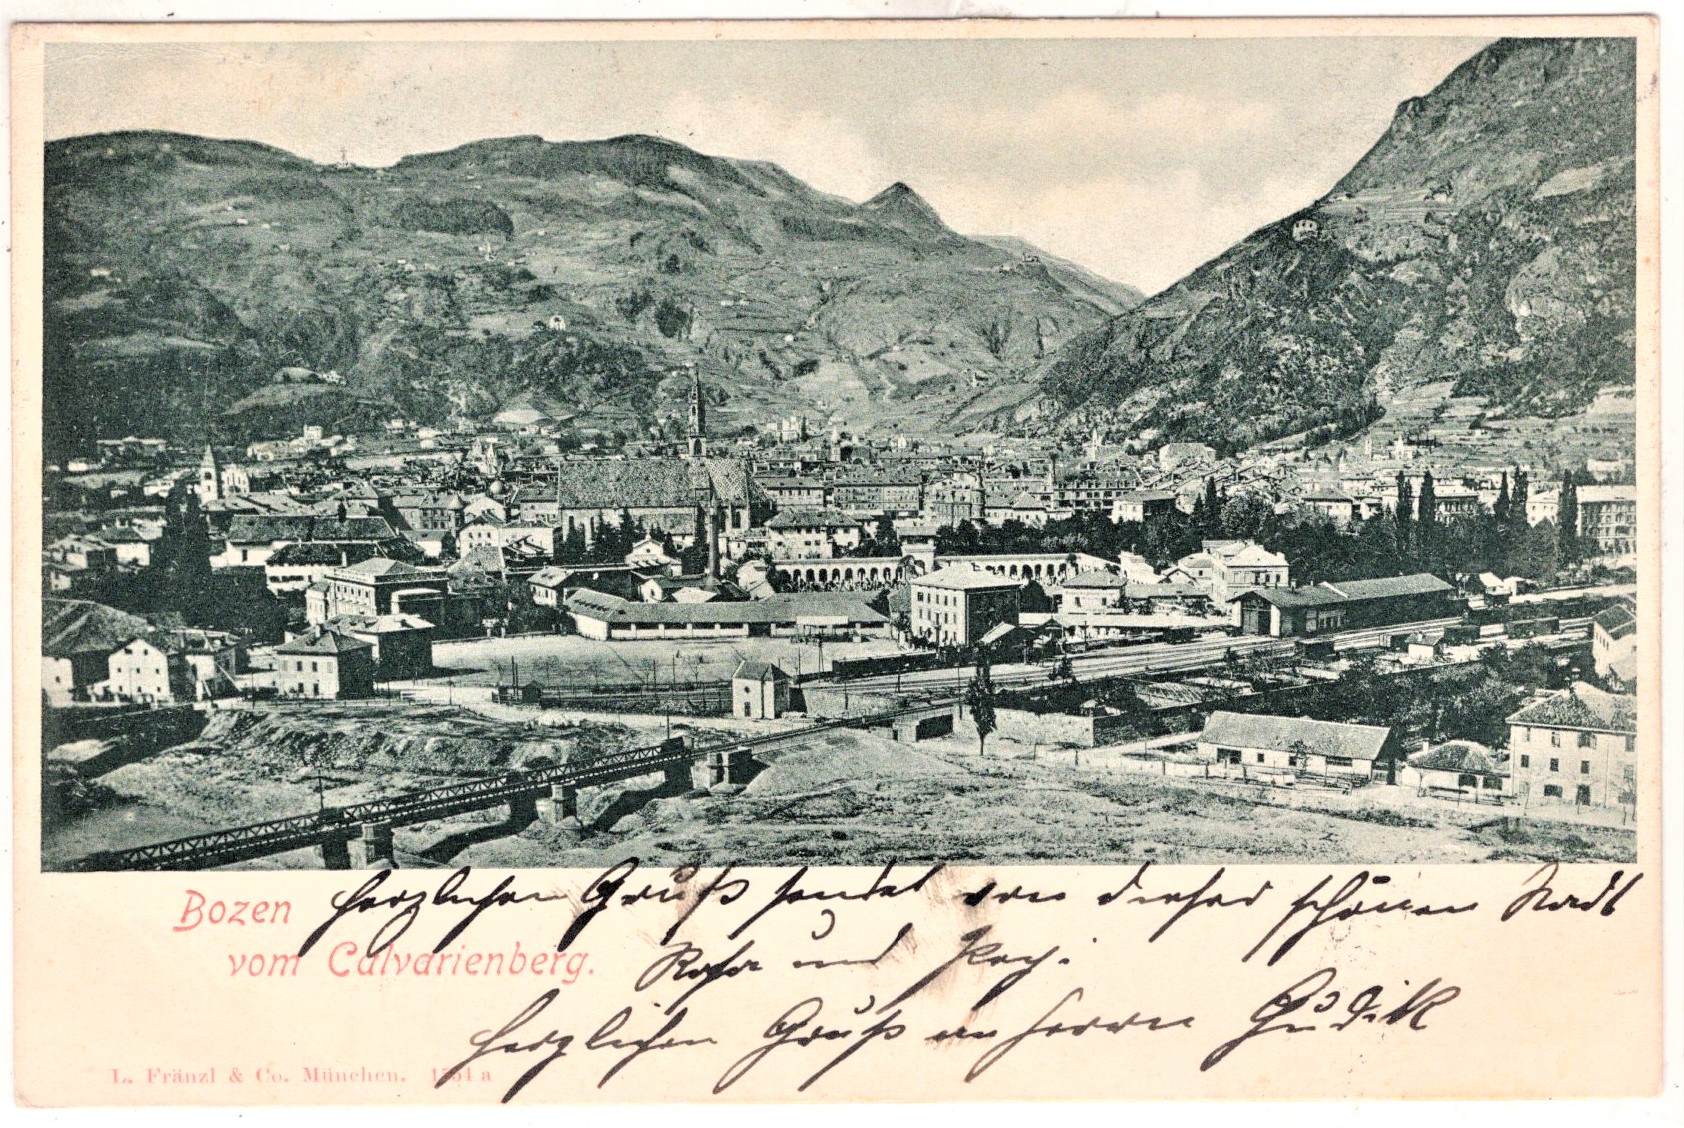 Bozen
vom Calvarienberg.
herzlichen Gruß sendet von dieser schönen Stadt
Rosa und
herzlichen Gruß an Herrn Gudik
L. Fränzl & Co. München. 1554 a